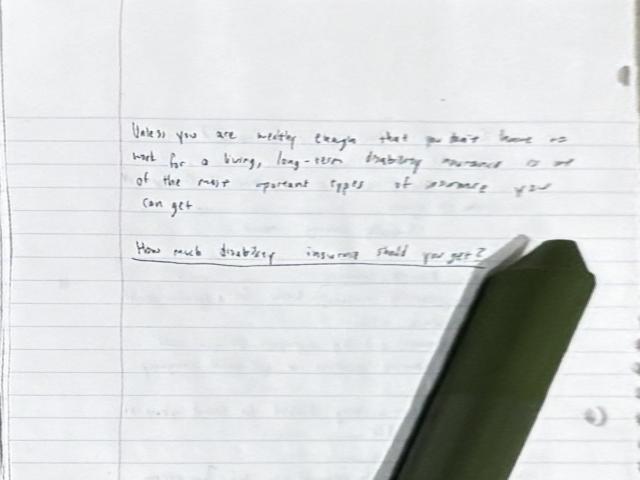 Unless you are wealthy enough that you don't have to
work for a living, long-term disability insurance is one
of the most important types of insurance you
can get
How much disability insurance should you get?